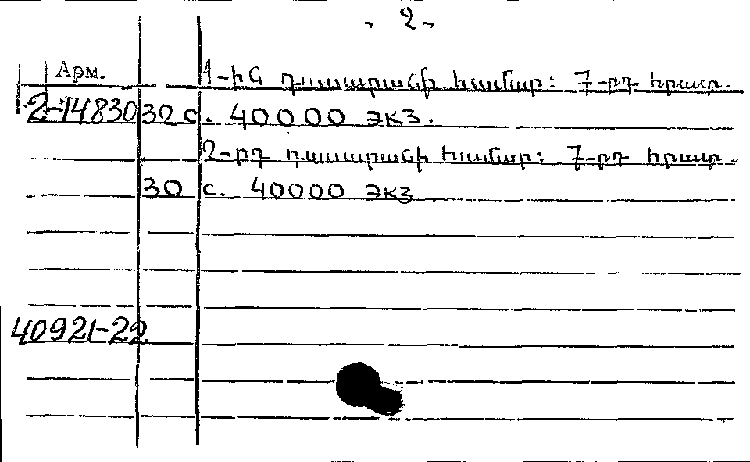 - 2-
Арм.
1-ին դասարանի համար: 7-րդ հրատ.
2-14830 30 с. 40000 экз.
2-րդ դասարանի համար: 7-րդ հրատ.
30 с. 40000 экз
40921-22